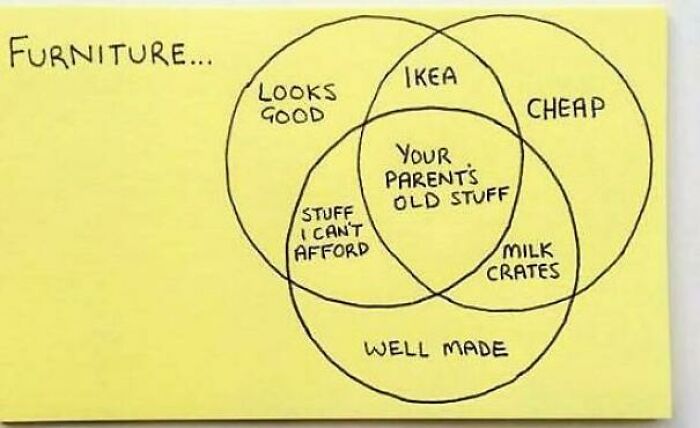 FURNITURE...
LOOKS
GOOD
IKEA
CHEAP
YOUR
PARENT'S
OLD STUFF
STUFF
I CAN'T
AFFORD
MILK
CRATES
WELL MADE